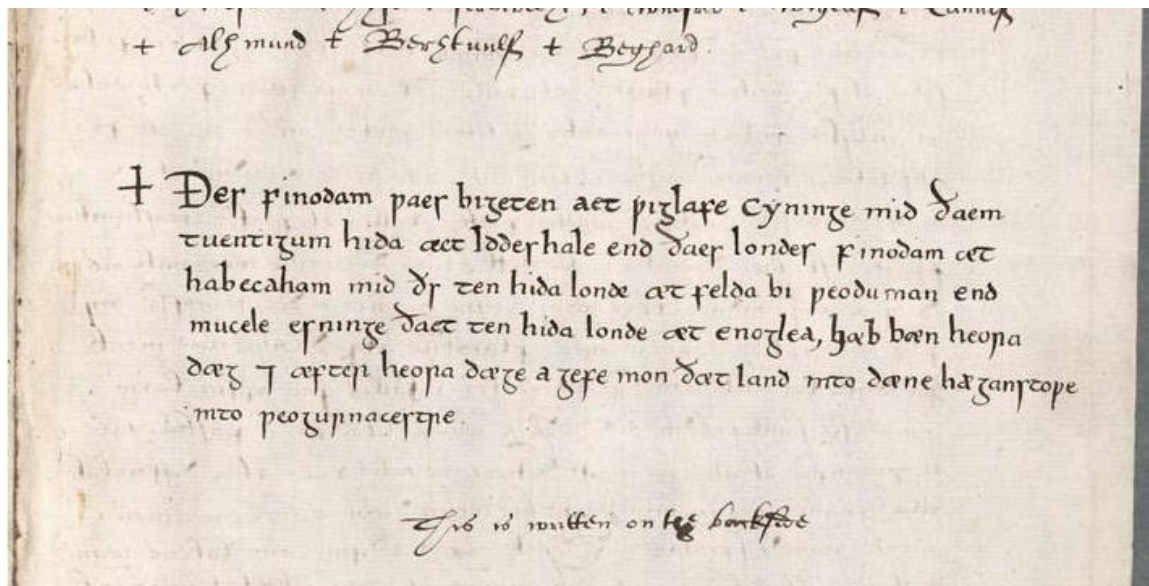 + Alhmund + Berhtuulf + Beghard.
+ Ðes friodam ƿaes bigeten aet ƿiglafe cyninge mid ðaem
tuentigum hida æct Iddeshale end ðaes londes friodam æt
habecaham mid ðy ten hida londe æt felda bi ƿeoduman end
mucele esninge ðaet ten hida londe æt croglea, hæb bæn heora
dæg ⁊ æfter heora dæge a gefe mon ðæt land into dære hæganstoƿe
into ƿeogurnacestre
This is written on the backside